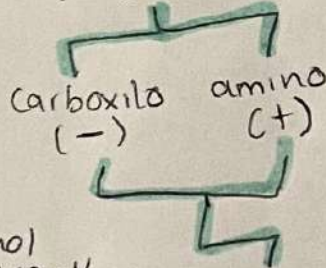 carboxilo amino
(-) (+)